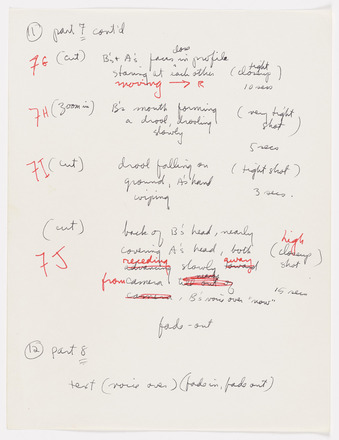 (11) part 7 cont'd
7G (cut) B's + A's faces in profile close
staring at each other (tight closeup)
moving → ← 10 secs
7H (zoom in) B's mouth forming (very tight
a drool, drooling shot)
slowly
5 secs
7I (cut) drool falling on (tight shot)
ground, A's hand 3 secs.
wiping
(cut) back of B's head, nearly high
7J covering A's head, both (closeup
receding slowly away shot)
from camera 15 secs
camera, B's voice over "now"
fade-out
(12) part 8
text (voice over) (fade in, fade out)